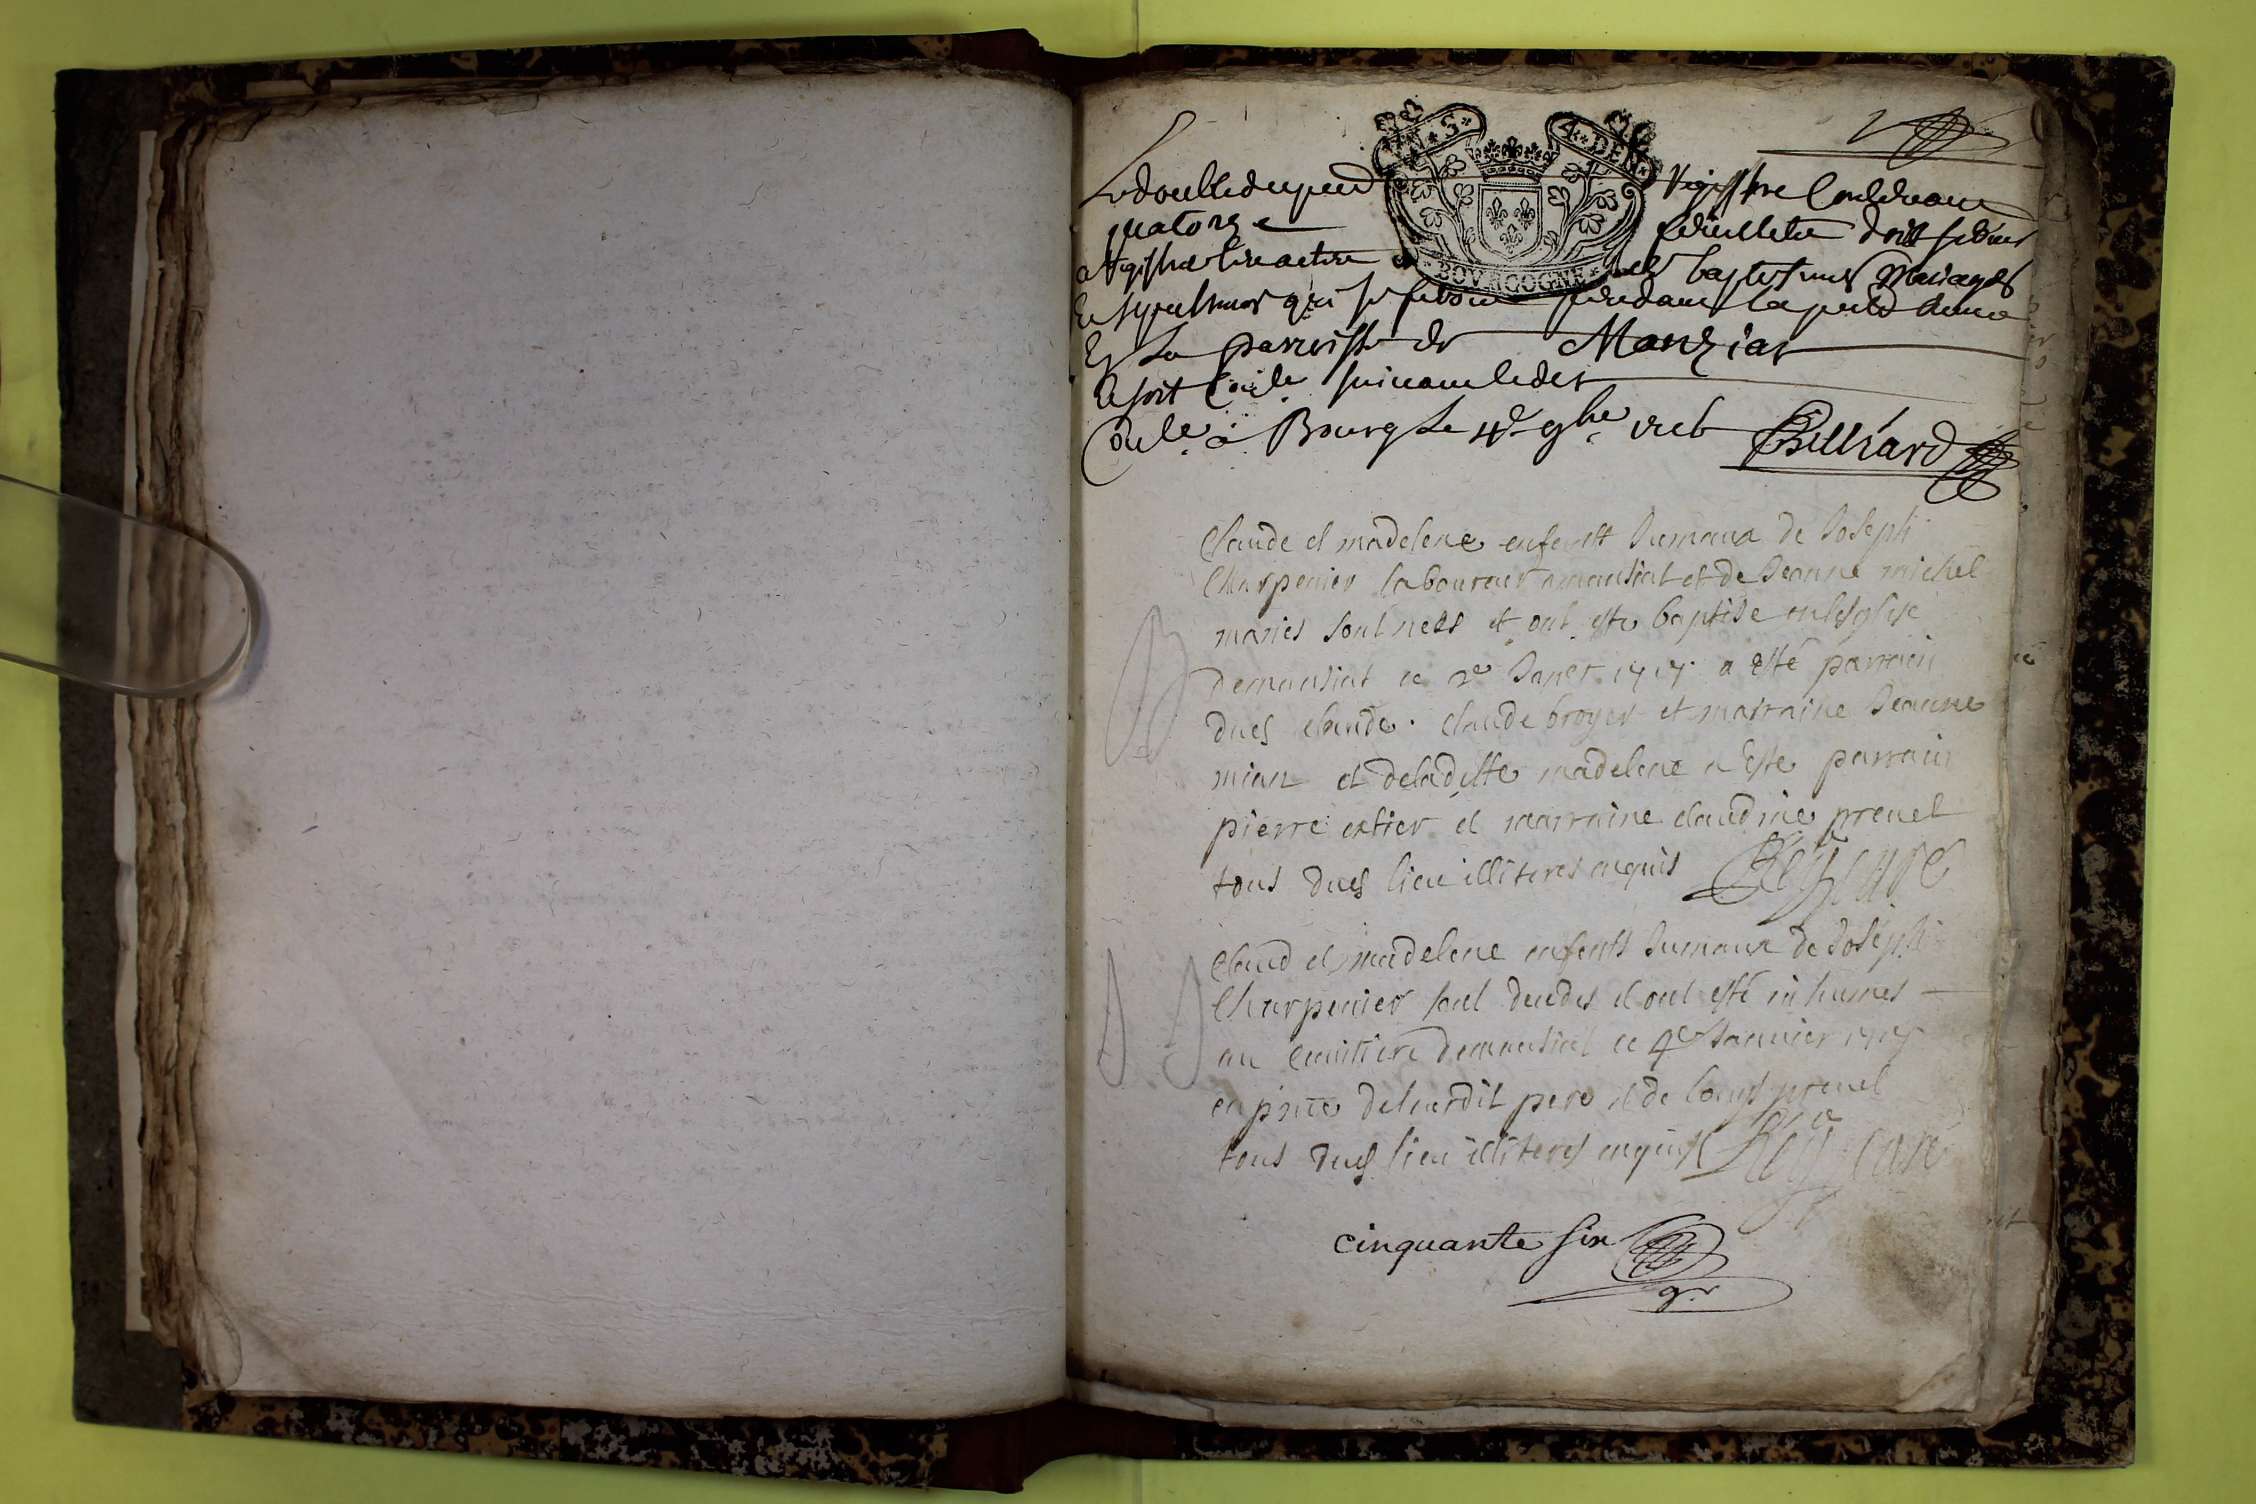 Le double du pnt Registre Contenant
quatorze feuillets doit servir
a Registrer les actes des baptesmes Mariages
Et sepultures qui se feront pendant la pnte année
En La parroisse de Manziat
Cotté à Bourg Le 4e 9bre Billiard
S 4 DEN
BOVRGOGNE
Claude et madelene enfents Jumaux de Joseph
Charpenier laboureur a mansiat et de Jeanne michel
maries sont nees et ont este baptise en lesglise
de mansiat ce 2e Janer 1717 a esté parrain
dues claude claude broyer et marraine Jeanne
et deladitte madelene a Este parrain
pierre et marraine claudine prevel
tous dues lieu illiteres enquis Rey curé
Claud et madelene enfents Jumaux de Joseph
Charpenier sont et ont esté inhumes
au cemittiere de mansiat ce 4e Janvier 1717
en pnce deleurdit pere et de prevel
tous dues lieu illiteres enquis Rey curé
cinquante six